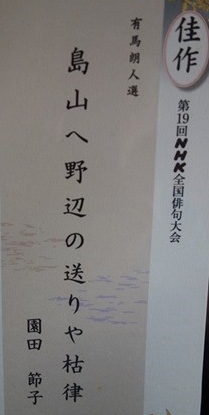 佳作
第19回NHK全国俳句大会
有馬朗人選
島山へ野辺の送りや枯葎
園田 節子